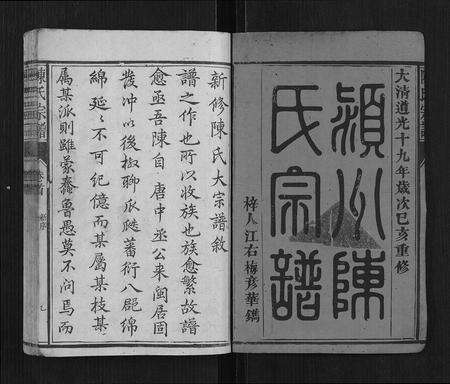 大清道光十九年歲次己亥重修
潁川陳
氏宗譜
梓人江右梅彥華鐫
新修陳氏大宗譜敘
譜之作也所以收族也族愈繁故譜
愈亟吾陳自唐中丞公來閩居固
發冲以後椒聊瓜瓞蕃衍八郡綿
綿延延不可紀億而某屬某枝某
屬某派則雖蒙䮒魯愚莫不問焉而
陳氏宗譜